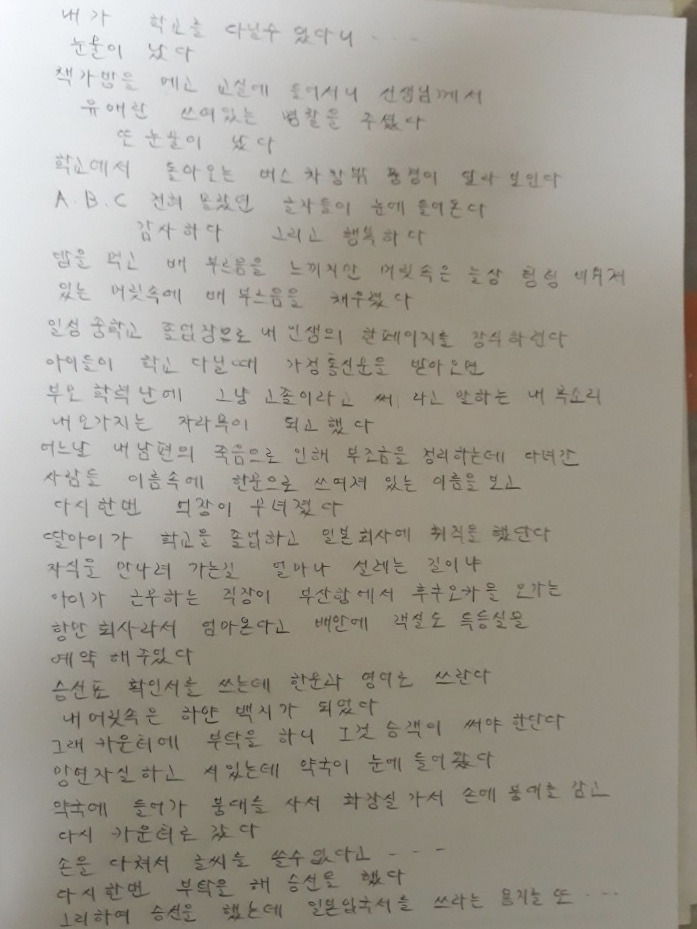 내가 학교를 다닐수 있다니 - - -
눈물이 났다
책가방을 메고 교실에 들어서니 선생님께서
유애란 쓰여있는 명찰을 주셨다
또 눈물이 났다
학교에서 돌아오는 버스 차창밖 풍경이 달라 보인다
A.B.C 전혀 몰랐던 글자들이 눈에 들어온다
감사하다 그리고 행복하다
밥을 먹고 배 부르음을 느끼지만 머릿속은 늘상 텅텅 비워져
있는 머릿속에 배 부르음을 채우렸다
일성 중학교 졸업장으로 내 인생의 한페이지를 장식하련다
아이들이 학교 다닐때 가정통신문을 받아오면
부모 학력난에 그냥 고졸이라고 써 라고 말하는 내 목소리
내모가지는 자라목이 되고 했다
어느날 내남편의 죽음으로 인해 부조함을 정리하는데 다녀간
사람들 이름속에 한문으로 쓰여져 있는 이름을 보고
다시한번 억장이 무너졌다
딸아이가 학교를 졸업하고 일본회사에 취직을 했단다
자식을 만나러 가는길 얼마나 설레는 길이냐
아이가 근무하는 직장이 부산항에서 후쿠오카를 오가는
항만 회사라서 엄마온다고 배안에 객실도 특등실을
예약 해주었다
승선표 확인서를 쓰는데 한문과 영어로 쓰란다
내 머릿속은 하얀 백지가 되었다
그래 카운터에 부탁을 하니 그것 승객이 써야 한단다
망연자실 하고 서있는데 약국이 눈에 들어왔다
약국에 들어가 붕대를 사서 화장실 가서 손에 붕대를 감고
다시 카운터로 갔다
손을 다쳐서 글씨를 쓸수없다고 - - - -
다시한번 부탁을 해 승선을 했다
그리하여 승선을 했는데 일본입국서를 쓰라는 용지를 또 ...